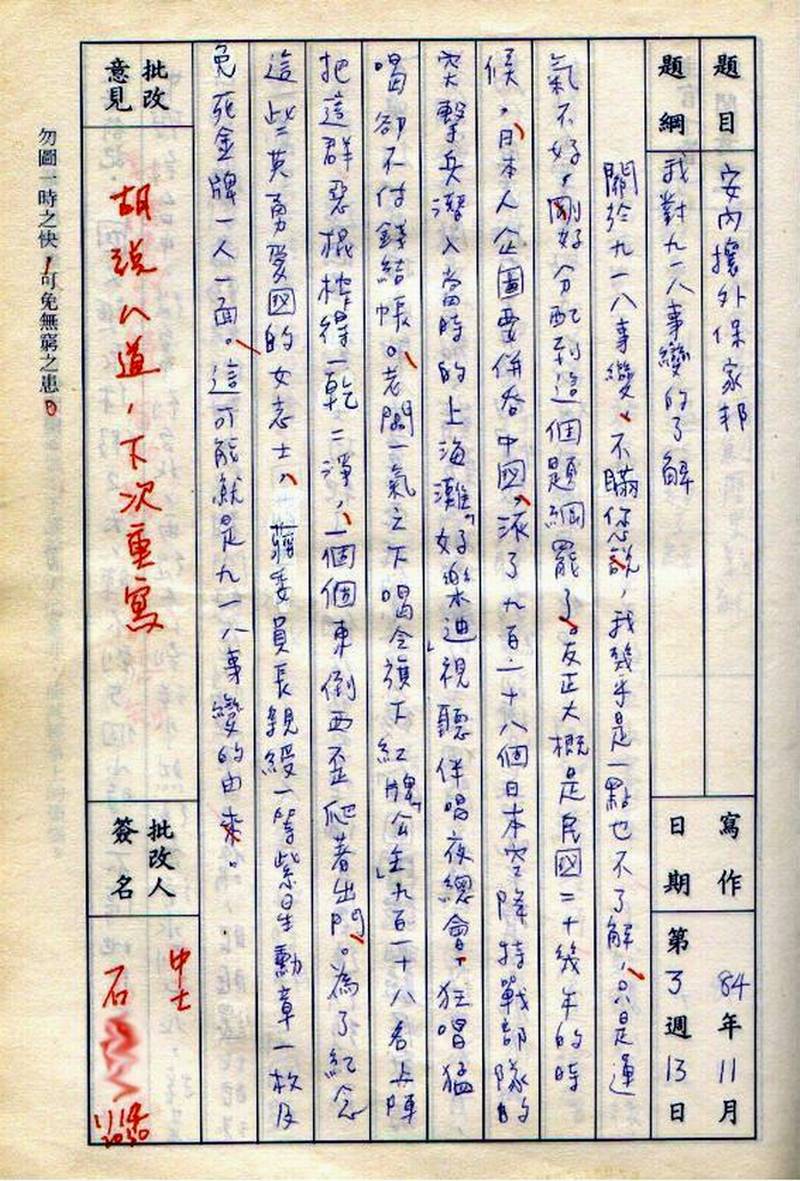 題目 安內攘外保家邦
寫作日期 84年11月第3週13日
題綱 我對九一八事變的了解
關於九一八事變、不瞞您說，我幾乎是一點也不了解，只是運
氣不好，剛好分配到這個題綱罷了。反正大概是民國二十幾年的時
候，日本人企圖要併吞中國，派了九百一十八個日本空降特戰部隊的
突擊兵潛入當時的上海灘「好樂迪視聽伴唱夜總會」狂唱猛
喝卻不付錢結帳。老闆一氣之下喝令旗下紅牌「公主」九百一十八名上陣
把這群惡棍榨得一乾二淨，一個個東倒西歪爬著出門。為了紀念
這些英勇愛國的女志士，蔣委員長親綬一等紫星勳章一枚及
免死金牌一人一面。這可能就是九一八事變的由來。
批改意見 胡說八道，下次重寫
批改人簽名 中士 石
11/14
2030
勿圖一時之快，可免無窮之患。